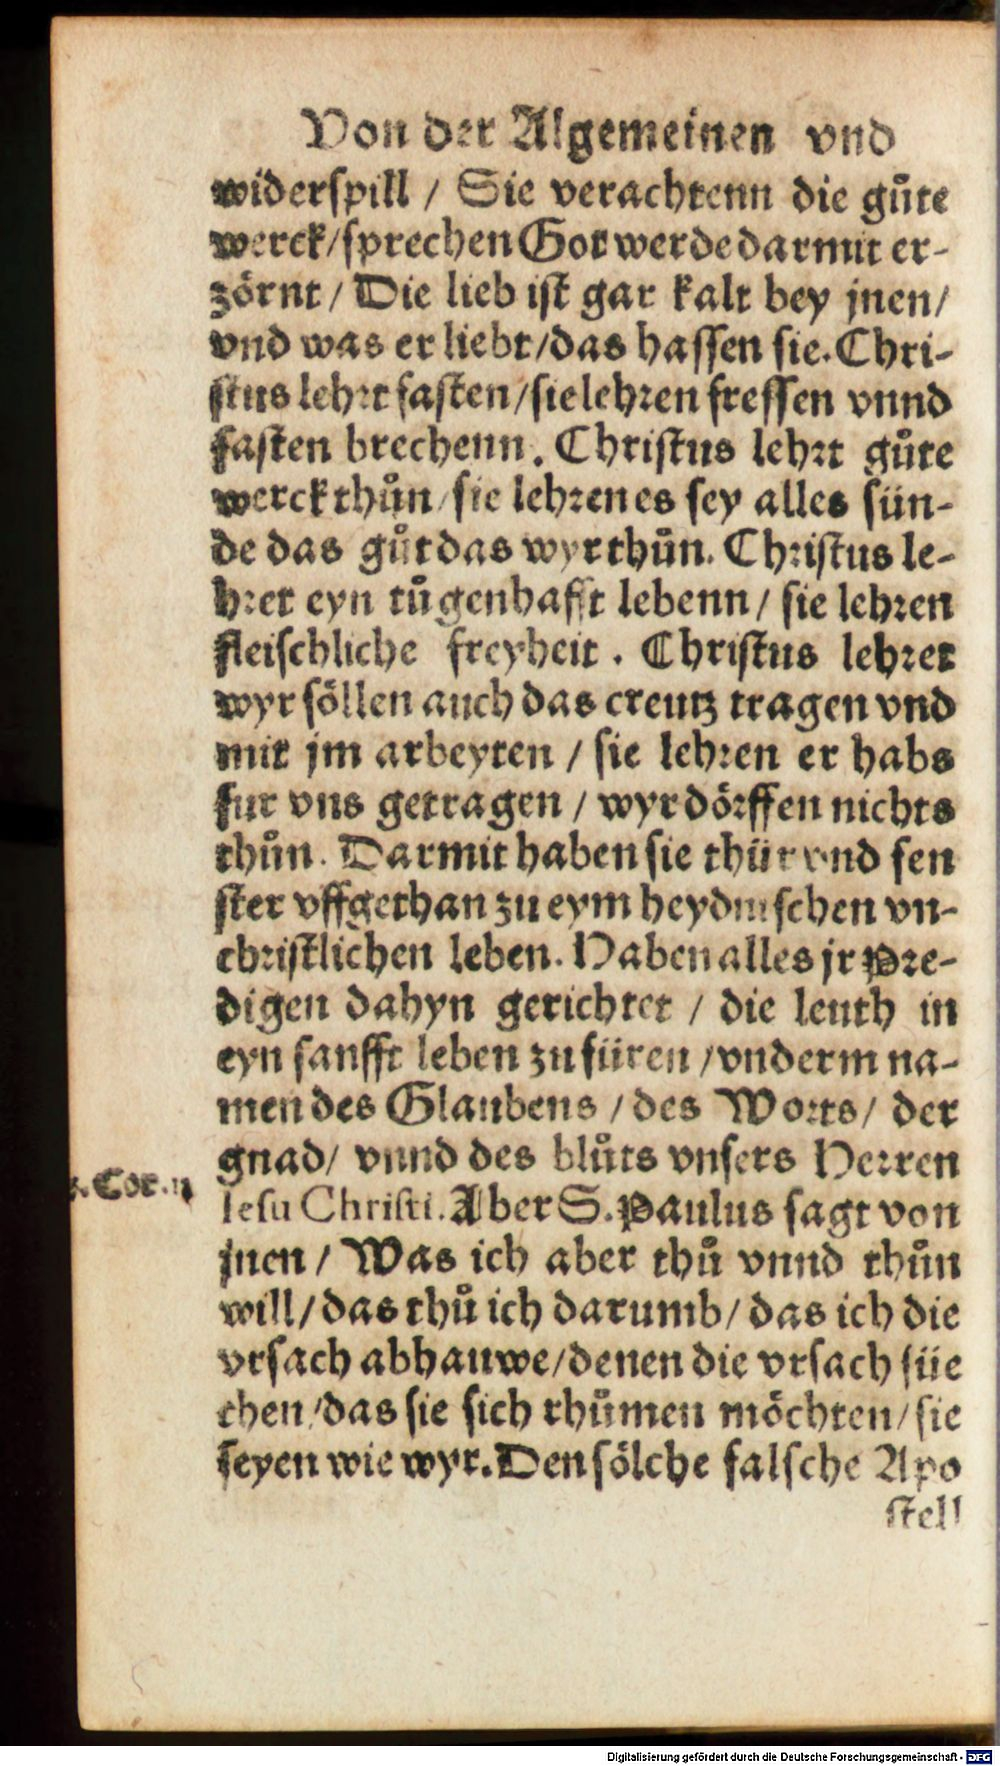 Von der Algemeinen vnd
widerspill / Sie verachtenn die gůte
werck/sprechen Got werde darmit er-
zörnt / Die lieb ist gar kalt bey jnen/
vnd was er liebt/das hassen sie. Chri-
stus lehrt fasten/sie lehren fressen vnnd
fasten brechenn. Christus lehrt gůte
werck thůn/sie lehren es sey alles sün-
de das gůt das wyr thůn. Christus le-
hret eyn tůgenhafft lebenn/ sie lehren
fleischliche freyheit. Christus lehret
wyr söllen auch das creutz tragen vnd
mit jm arbeyten / sie lehren er habs
fur vns getragen / wyr dörffen nichts
thůn. Darmit haben sie thür vnd fen
ster vffgethan zu eym heydnischen vn-
christlichen leben. Haben alles jr Pre-
digen dahyn gerichtet / die leuth in
eyn sanfft leben zu füren /vnderm na-
men des Glaubens / des Worts/ der
gnad/ vnnd des blůts vnsers Herren
Iesu Christi. Aber S. Paulus sagt von
jnen / Was ich aber thů vnnd thůn
will/das thů ich darumb/ das ich die
vrsach abhauwe/denen die vrsach süe
chen/das sie sich rhůmen möchten/sie
seyen wie wyr. Den sölche falsche Apo
stell
Cor. 11
Digitalisierung gefördert durch die Deutsche Forschungsgemeinschaft - DFG